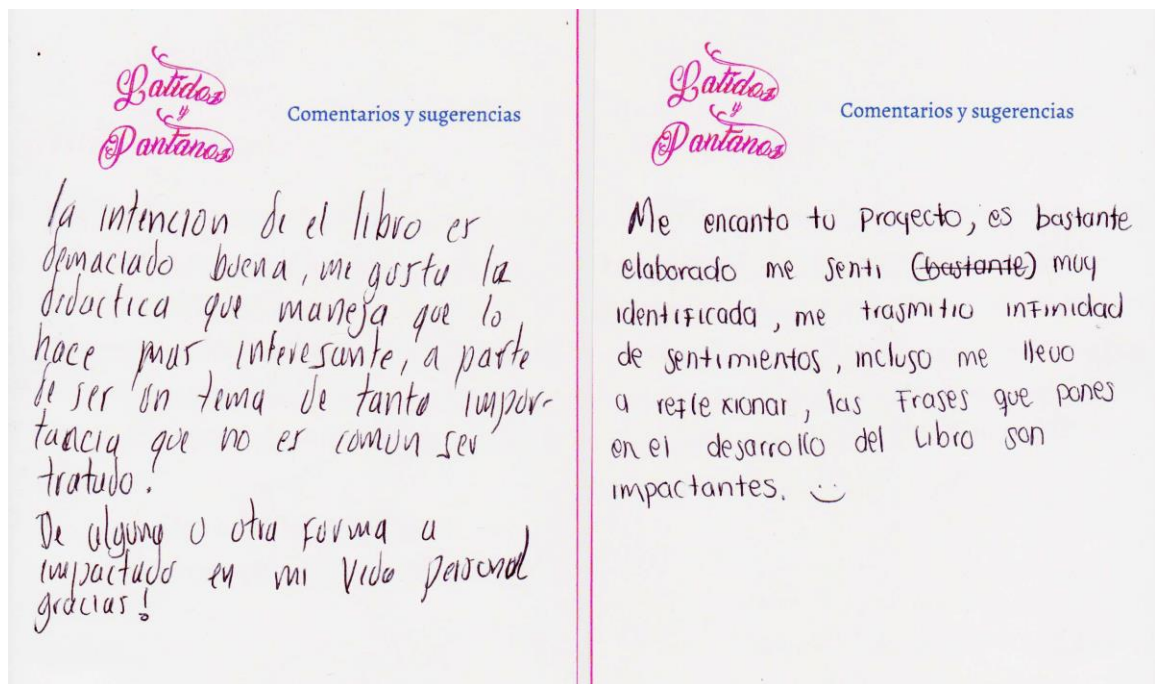 Latidos
y
Pantanos
Comentarios y sugerencias
la intencion de el libro es
demaciado buena, me gusta la
didactica que maneja que lo
hace mas interesante, a parte
de ser un tema de tanta impor-
tancia que no es comun ser
tratado.
De alguna o otra forma a
impactado en mi vida personal
gracias!
Latidos
y
Pantanos
Comentarios y sugerencias
Me encanto tu proyecto, es bastante
elaborado me senti (bastante) muy
identificada, me trasmitio infinidad
de sentimientos, incluso me llevo
a reflexionar, las frases que pones
en el desarrollo del libro son
impactantes.